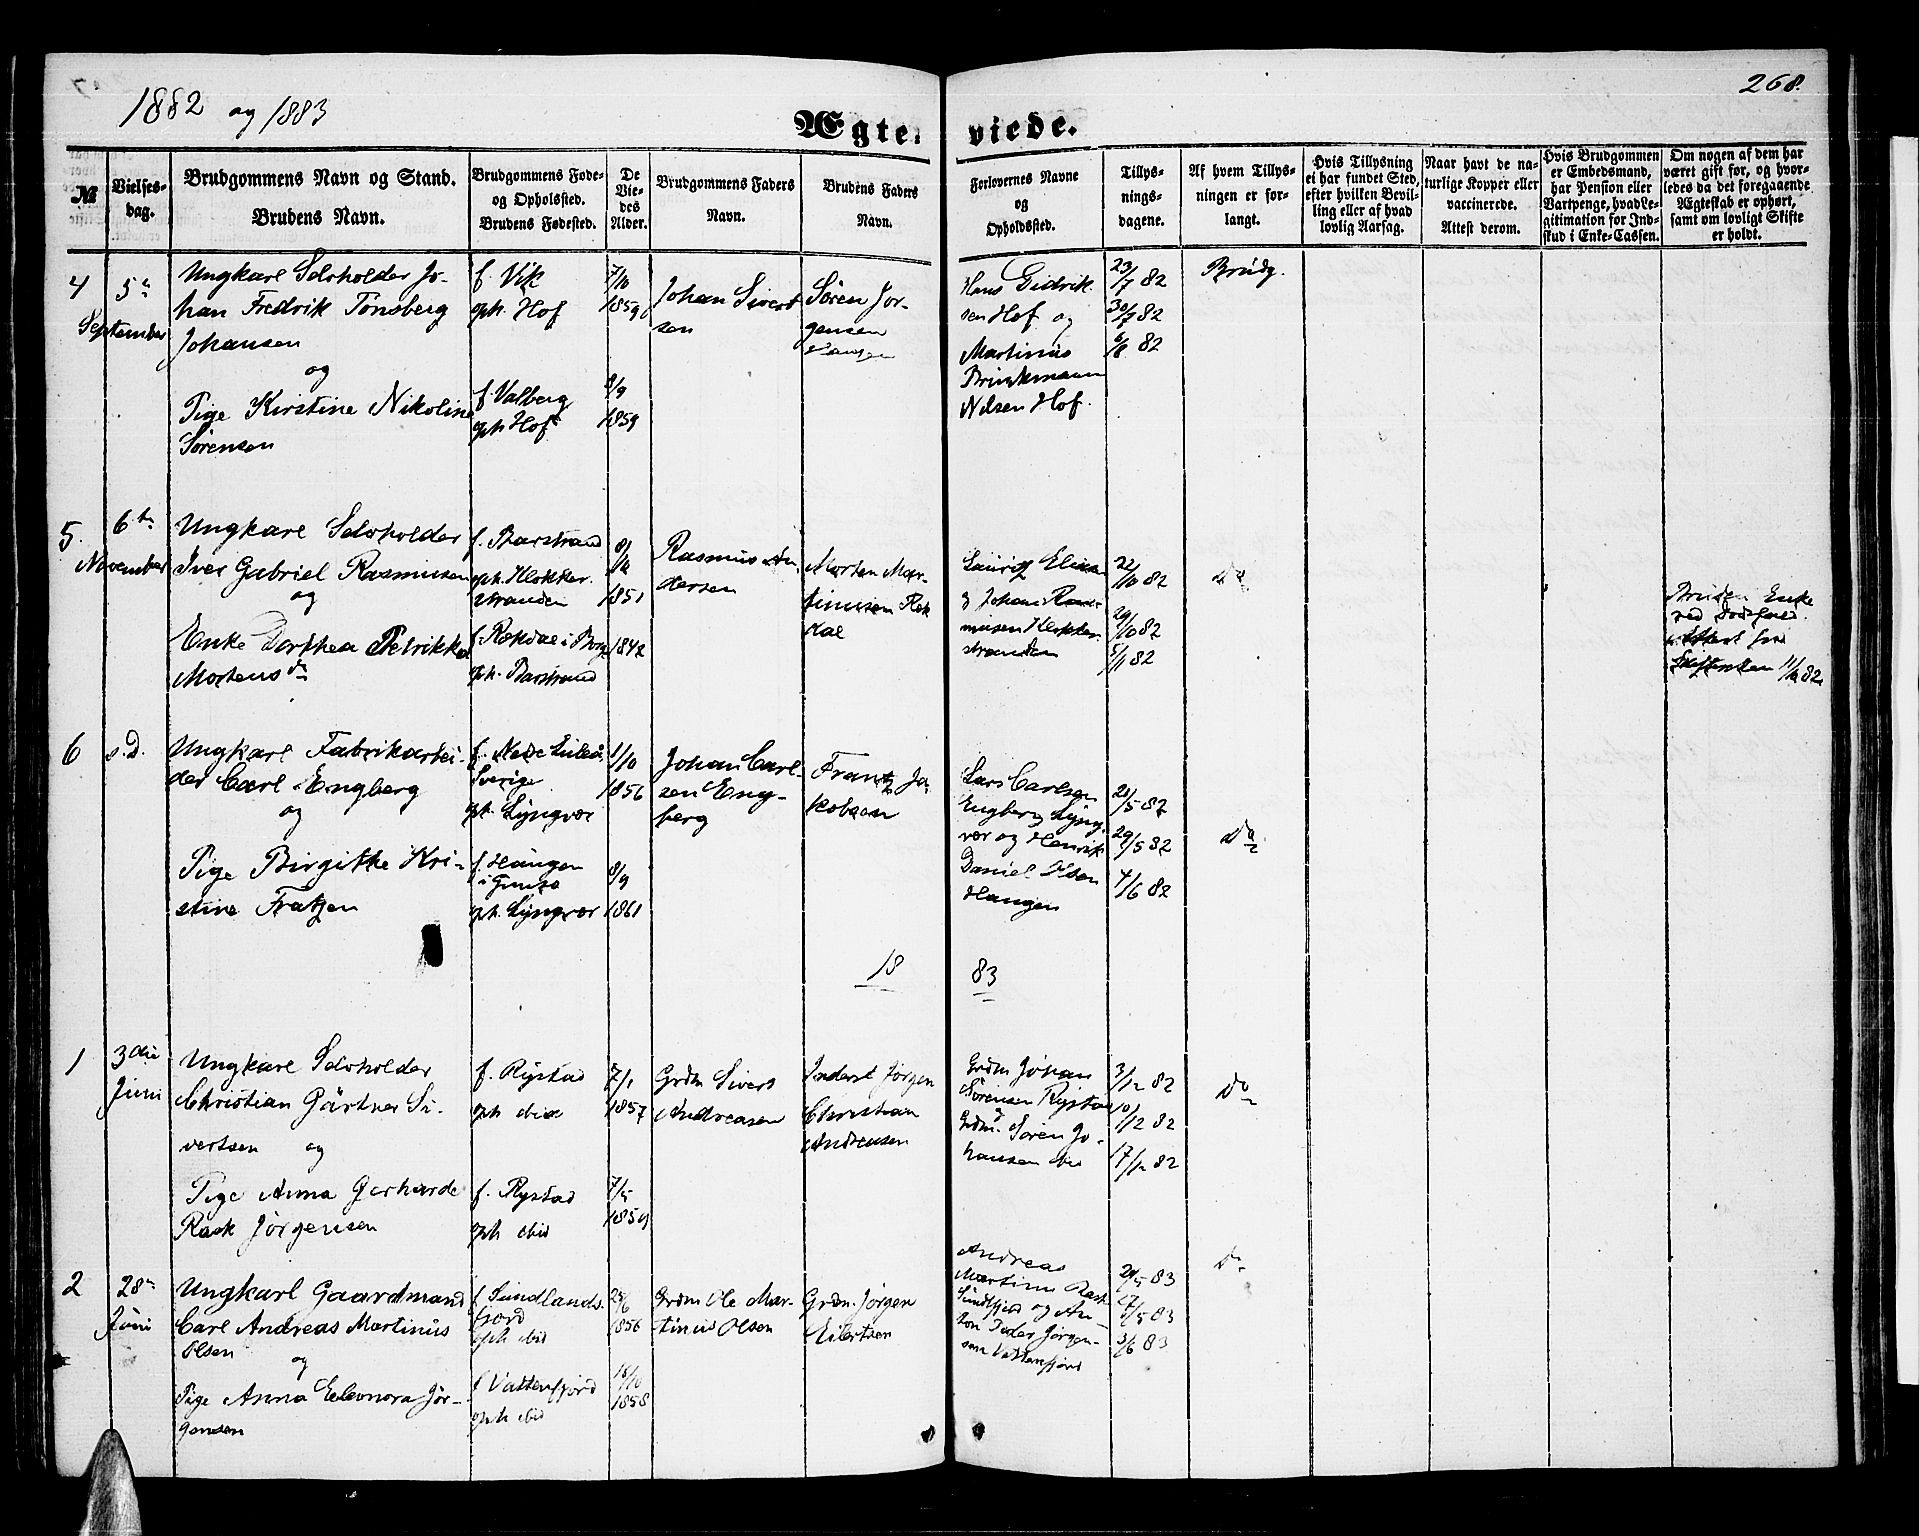 1882 og 1883
268.
Ægteviede.
№
Vielsesdag.
Brudgommens Navn og Stand.
Brudens Navn.
Brudgommens Føde-
og Opholdssted.
Brudens Fødested.
De
Vie-
des
Alder.
Brudgommens Faders
Navn.
Brudens Faders
Navn.
Forlovernes Navne
og
Opholdssted.
Tillys-
nings-
dagene.
Af hvem Tillys-
ningen er for-
langt.
Hvis Tillysning
ei har fundet Sted,
efter hvilken Bevil-
ling eller af hvad
lovlig Aarsag.
Naar havt de na-
turlige Kopper eller
vaccinerede.
Attest derom.
Hvis Brudgommen
er Embedsmand,
har Pension eller
Vartpenge, hvad Le-
gitimation for Ind-
skud i Enke-Cassen.
Om nogen af dem har
været gift før, og hvor-
ledes da det foregaaende
Ægteskab er ophørt,
samt om lovligt Skifte
er holdt.
4
5te
September
Ungkarl Selvholder Jo-
han Fredrik Tønsberg
Johansen
og
Pige Kirstine Nikoline
Sørensen
f. Vik
oph. Hof
f. Valberg
oph Hof
7/10
1859
8/9
1859
Johan Sivert
sen
Søren Jør-
gensen
Hans Gidrik
sen Hof og
Martinus
Brinkmann
Nilsen Hof.
23/7 82
30/7 82
6/8 82
Brudg.
5.
6te
November
Ungkarl Selvholder
Iver Gabriel Rasmussen
og
Enke Dorthea Petrikka
Mortensdr
f. Barstrand
oph. Klokker-
stranden
f. Rekdal i Borge
oph. Barstrand
1851
1842
Rasmus An-
dersen
Morten Mar-
tinusen Rek
dal
Lauritz Elias
og Johan Ras-
musen Klokker-
stranden
22/10 82
29/10 82
5/11 82
do
Bruden Enke
ved Dødsfald.
Attest fra
Skifteretten 11/10 82
6
s.D.
Ungkarl Fabrikarbei-
der Carl Engberg
og
Pige Birgitte Kri-
stine Frantzen
f. Nede Luleå
Sverige
oph. Lyngvær
f. Haugen
i Gimsø
oph. Lyngvær
1/10
1856
8/9
1861
Johan Carl-
sen Eng-
berg
Frantz Ja-
kobsen
Lars Carlsen
Engberg Lyng-
vær og Henrik
Daniel Olsen
Haugen
21/5 82
29/5 82
4/6 82
do
18 83
1
3die
Juni
Ungkarl Selvholder
Christian Gärtner Si-
vertsen og
Pige Anna Gerharde
Rask Jørgensen
f. Rystad
oph ibid
f. Rystad
oph ibid
7/1
1857
7/5
1859
Grdm Sivert
Andreasen
Inderst Jørgen
Christian
Andreasen
Grdm Johan
Sørensen Rystad
og
Grdm. Søren Jo-
hansen ibid
3/12 82
10/12 82
17/12 82
do
2
28de
Juni
Ungkarl Gaardmand
Carl Andreas Martinus
Olsen
og
Pige Anna Eleonora Jør-
gensen
f Sundlands-
fjord
oph ibid
f Vattenfjord
oph ibid
1856
16/10
1858
Grdm Ole Mar-
tinus Olsen
Grdm. Jørgen
Eilertsen
Andreas
Martinus Rask
Sundlfjord og An-
ton Peder Jørgen-
sen Vattenfjord
20/5 83
27/5 83
3/6 83
do